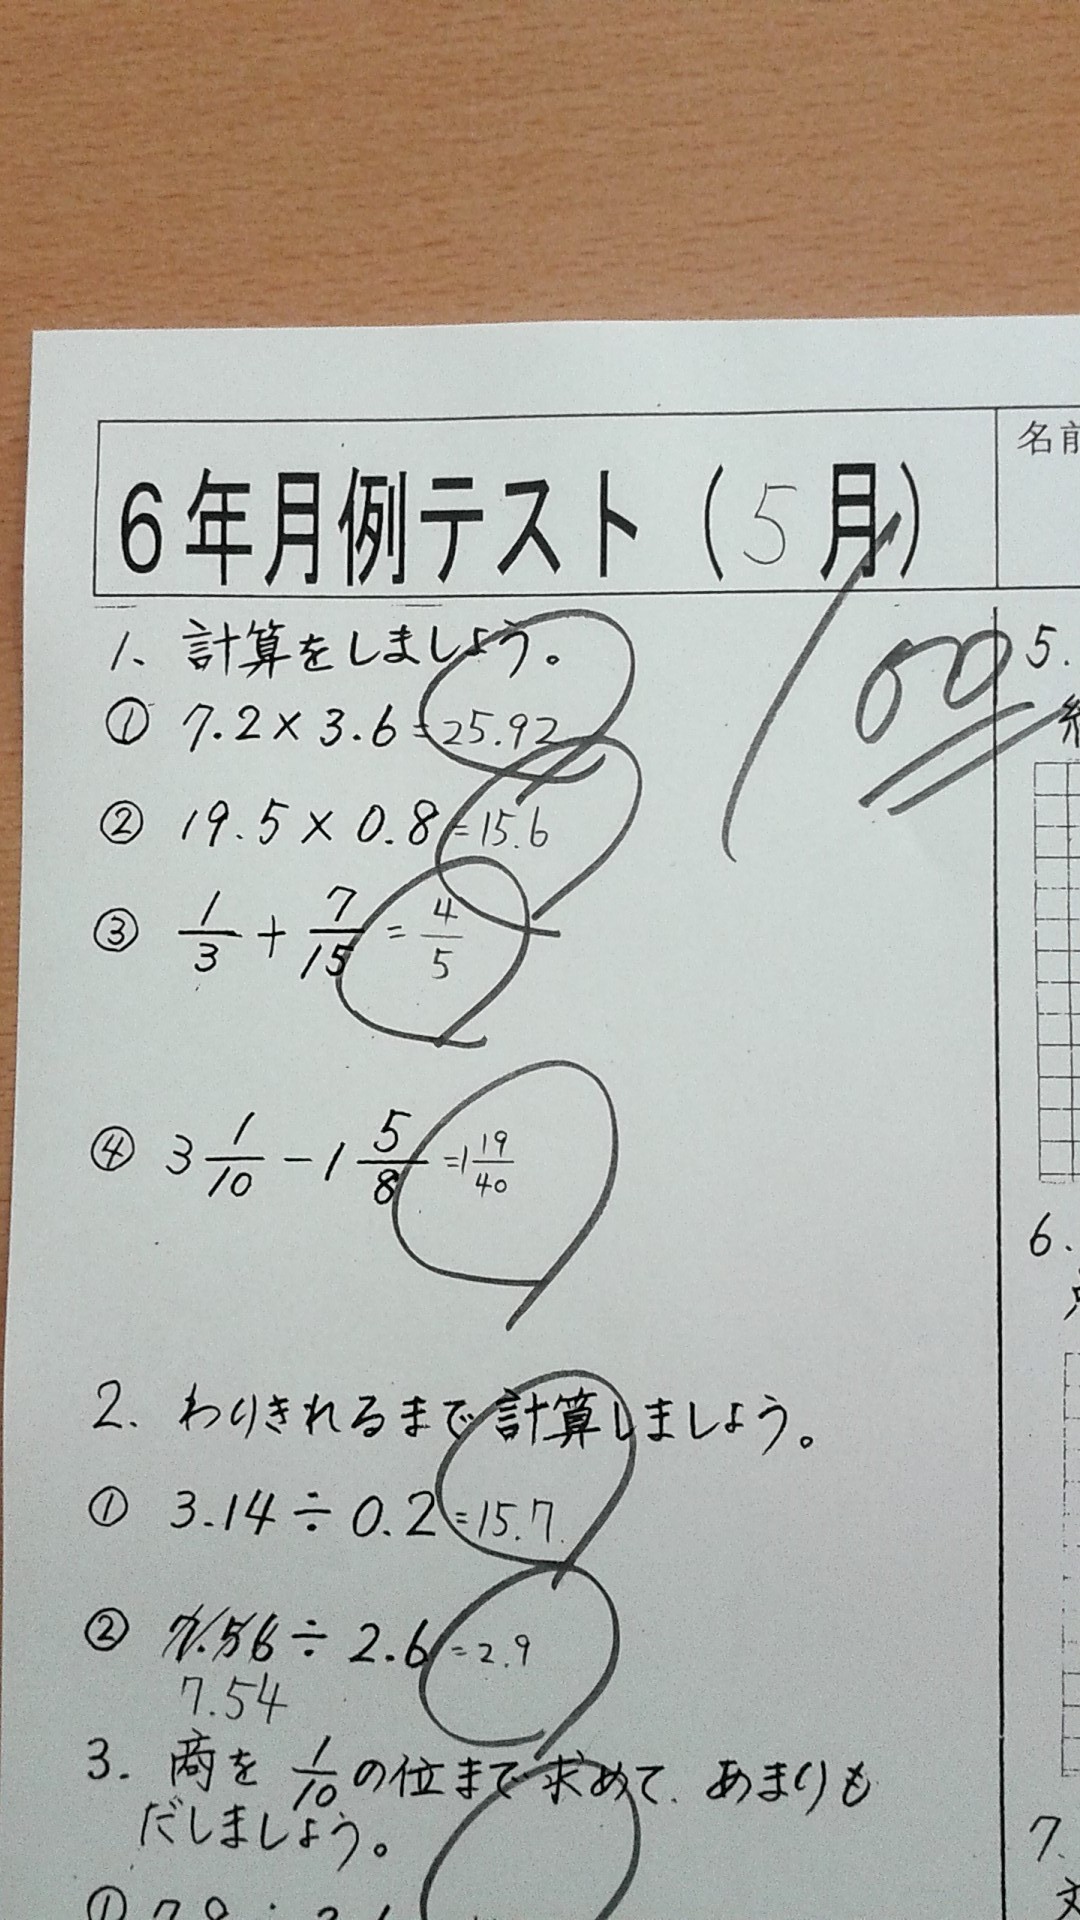 6年月例テスト（5月）
名前
100
1、計算をしましょう。
① 7.2×3.6=25.92
② 19.5×0.8=15.6
③ 1/3+7/15=4/5
④ 3 1/10-1 5/8=1 19/40
2. わりきれるまで計算しましょう。
① 3.14÷0.2=15.7
② 7.56÷2.6=2.9
7.54
3. 商を1/10の位まで求めて、あまりも
だしましょう。
①
5.
6.
7.
文